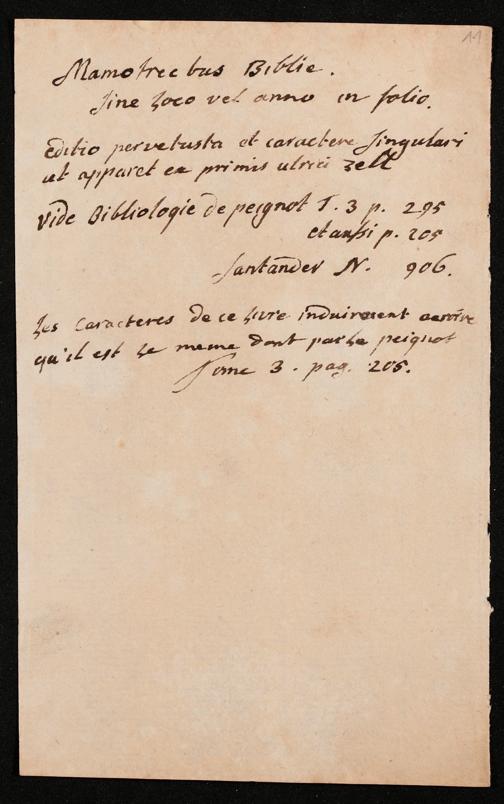 11
Mamotrectus Biblie.
sine Loco vel anno in folio.
Editio pervetusta et caractere singulari
ut apparet ex primis ulrici zell
vide Bibliologie de peignot T. 3 p. 295
et aussi p. 205
Santander N. 906.
Les caracteres de ce Livre induiroient acroire
qu'il est Le meme dont parle peignot
Tome 3. pag. 205.